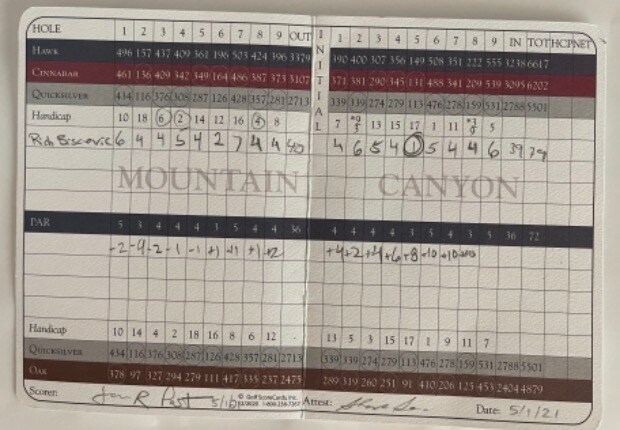 HOLE 1 2 3 4 5 6 7 8 9 OUT INITIAL 1 2 3 4 5 6 7 8 9 IN TOT HCP NET
HAWK 496 157 437 409 361 196 503 424 396 3379 390 400 307 356 149 508 351 222 555 3238 6617
CINNABAR 461 136 409 342 349 164 486 387 373 3107 371 381 290 345 131 488 341 209 539 3095 6202
QUICKSILVER 434 116 376 308 287 126 428 357 281 2713 339 339 274 279 113 476 278 159 531 2788 5501
Handicap 10 18 6 2 14 12 16 4 8 7 13 15 17 1 11 5
6 4 4 5 4 2 7 4 4 40 4 6 5 4 1 5 4 4 6 39 79
MOUNTAIN CANYON
PAR 5 3 4 4 4 3 5 4 4 36 4 4 4 4 3 5 4 3 5 36 72
-2 -4 -2 -1 -1 +1 +1 +1 +2 +4 +2 +4 +6 +8 +10 +10
Handicap 10 14 4 2 18 16 8 6 12 13 5 3 15 17 1 9 11 7
QUICKSILVER 434 116 376 308 287 126 428 357 281 2713 339 339 274 279 113 476 278 159 531 2788 5501
OAK 378 97 327 294 279 111 417 335 237 2475 289 319 260 251 91 410 206 125 453 2404 4879
Scorer: © Golf ScoreCards, Inc. Attest: Date: 5/1/21